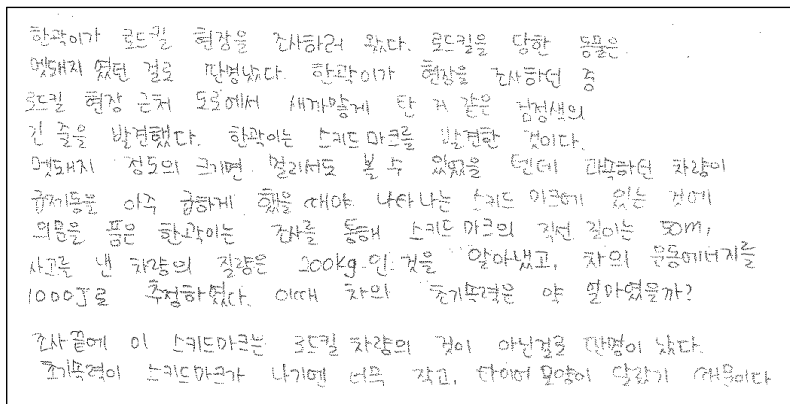 한곽이가 로드킬 현장을 조사하러 왔다. 로드킬을 당한 동물은
멧돼지 였던 걸로 판명났다. 한곽이가 현장을 조사하던 중
로드킬 현장 근처 도로에서 새까맣게 탄 거 같은 검정색의
긴 줄을 발견했다. 한곽이는 스키드 마크를 발견한 것이다.
멧돼지 정도의 크기면 멀리서도 볼 수 있었을 텐데 과속하던 차량이
급제동을 아주 급하게 했을 때야 나타나는 스키드 마크에 있는 것에
의문을 품은 한곽이는 조사를 통해 스키드마크의 직선 길이는 50m,
사고를 낸 차량의 질량은 200kg인 것을 알아냈고, 차의 운동에너지를
1000J로 추정하였다. 이때 차의 초기속력은 약 얼마였을까?
조사 끝에 이 스키드마크는 로드킬 차량의 것이 아닌걸로 판명이 났다.
초기속력이 스키드마크가 나기엔 너무 작고, 타이어 모양이 달랐기 때문이다